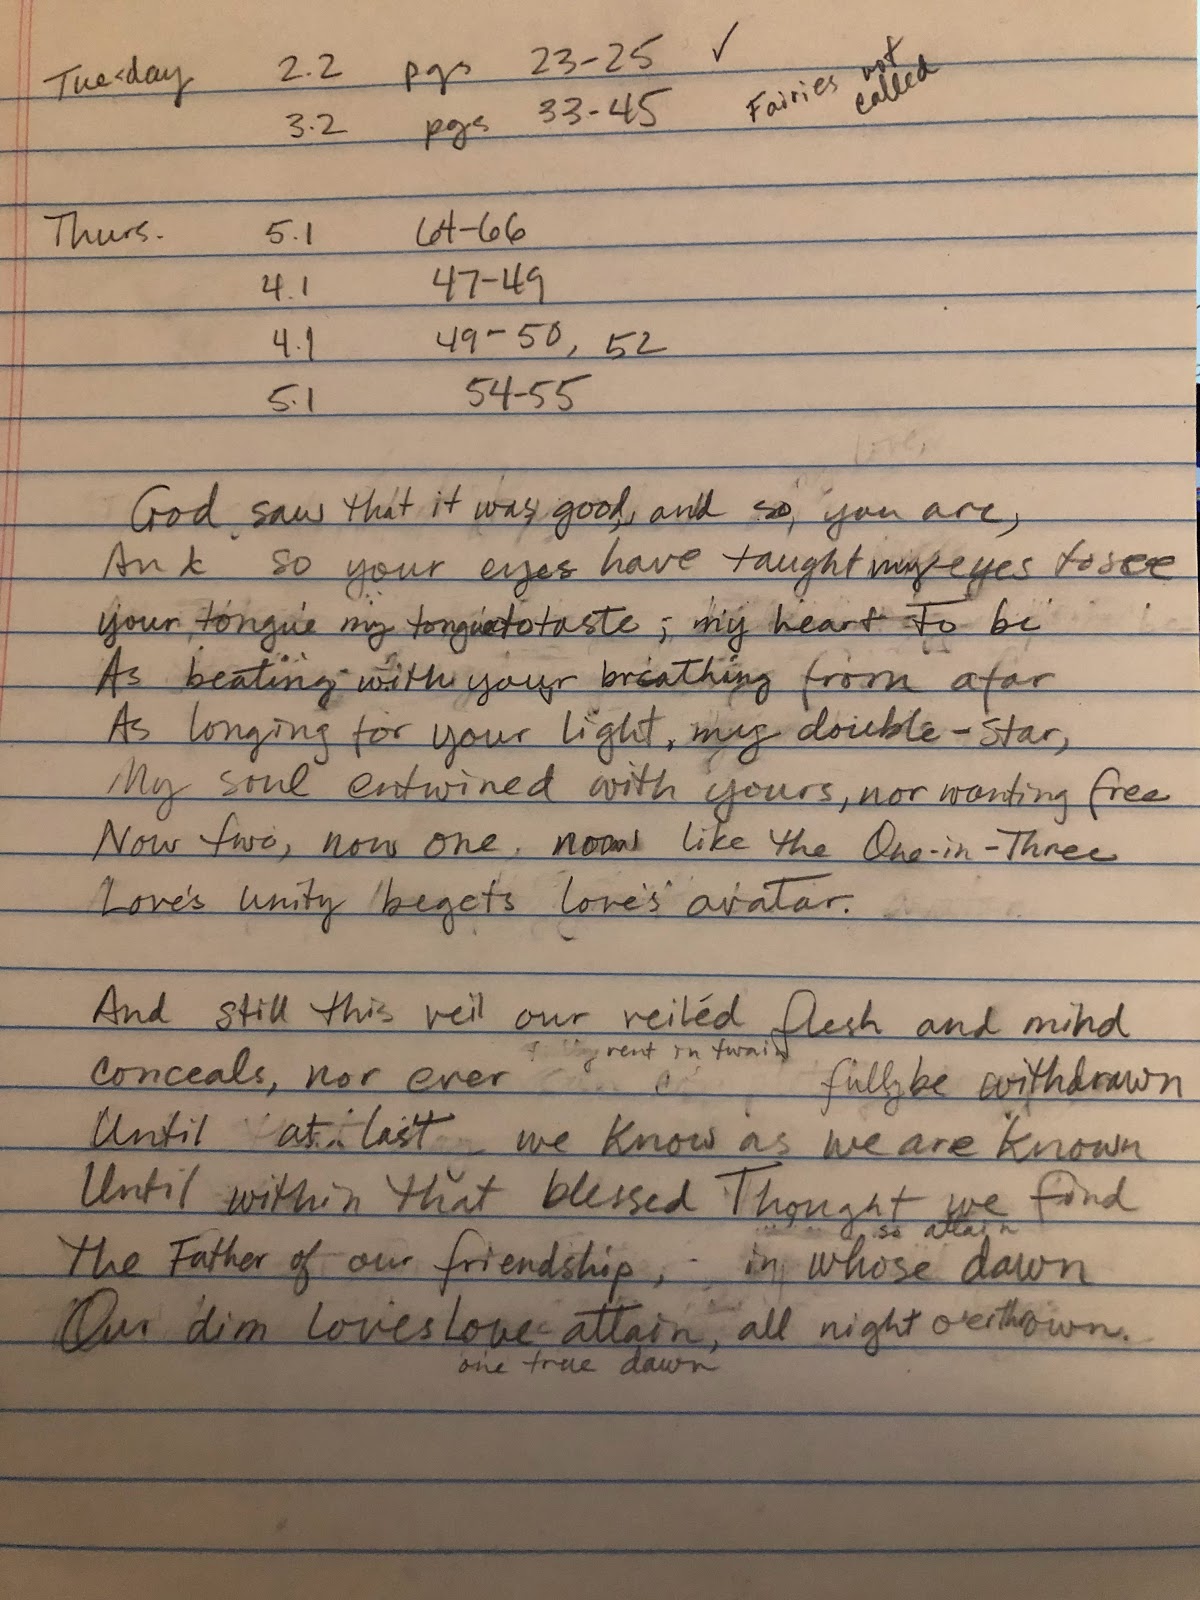 Tuesday 2.2 pgs 23-25 ✓
3.2 pgs 33-45 Fairies not called
Thurs. 5.1 64-66
4.1 47-49
4.1 49-50, 52
5.1 54-55
love,
God saw that it was good, and so, you are,
And so your eyes have taught my eyes to see
your tongue my tongue to taste; my heart To be
As beating with your breathing from afar
As longing for your light, my double-star,
My soul entwined with yours, nor wanting free
Now two, now one, now like the One-in-Three
Love's unity begets love's avatar.
And still this veil our veiléd flesh and mind
rent in twain
conceals, nor ever fully be withdrawn
Until at last we know as we are known
Until within that blessed Thought we find
so attain
the Father of our friendship, in whose dawn
Our dim loves Love attain, all night overthrown.
one true dawn